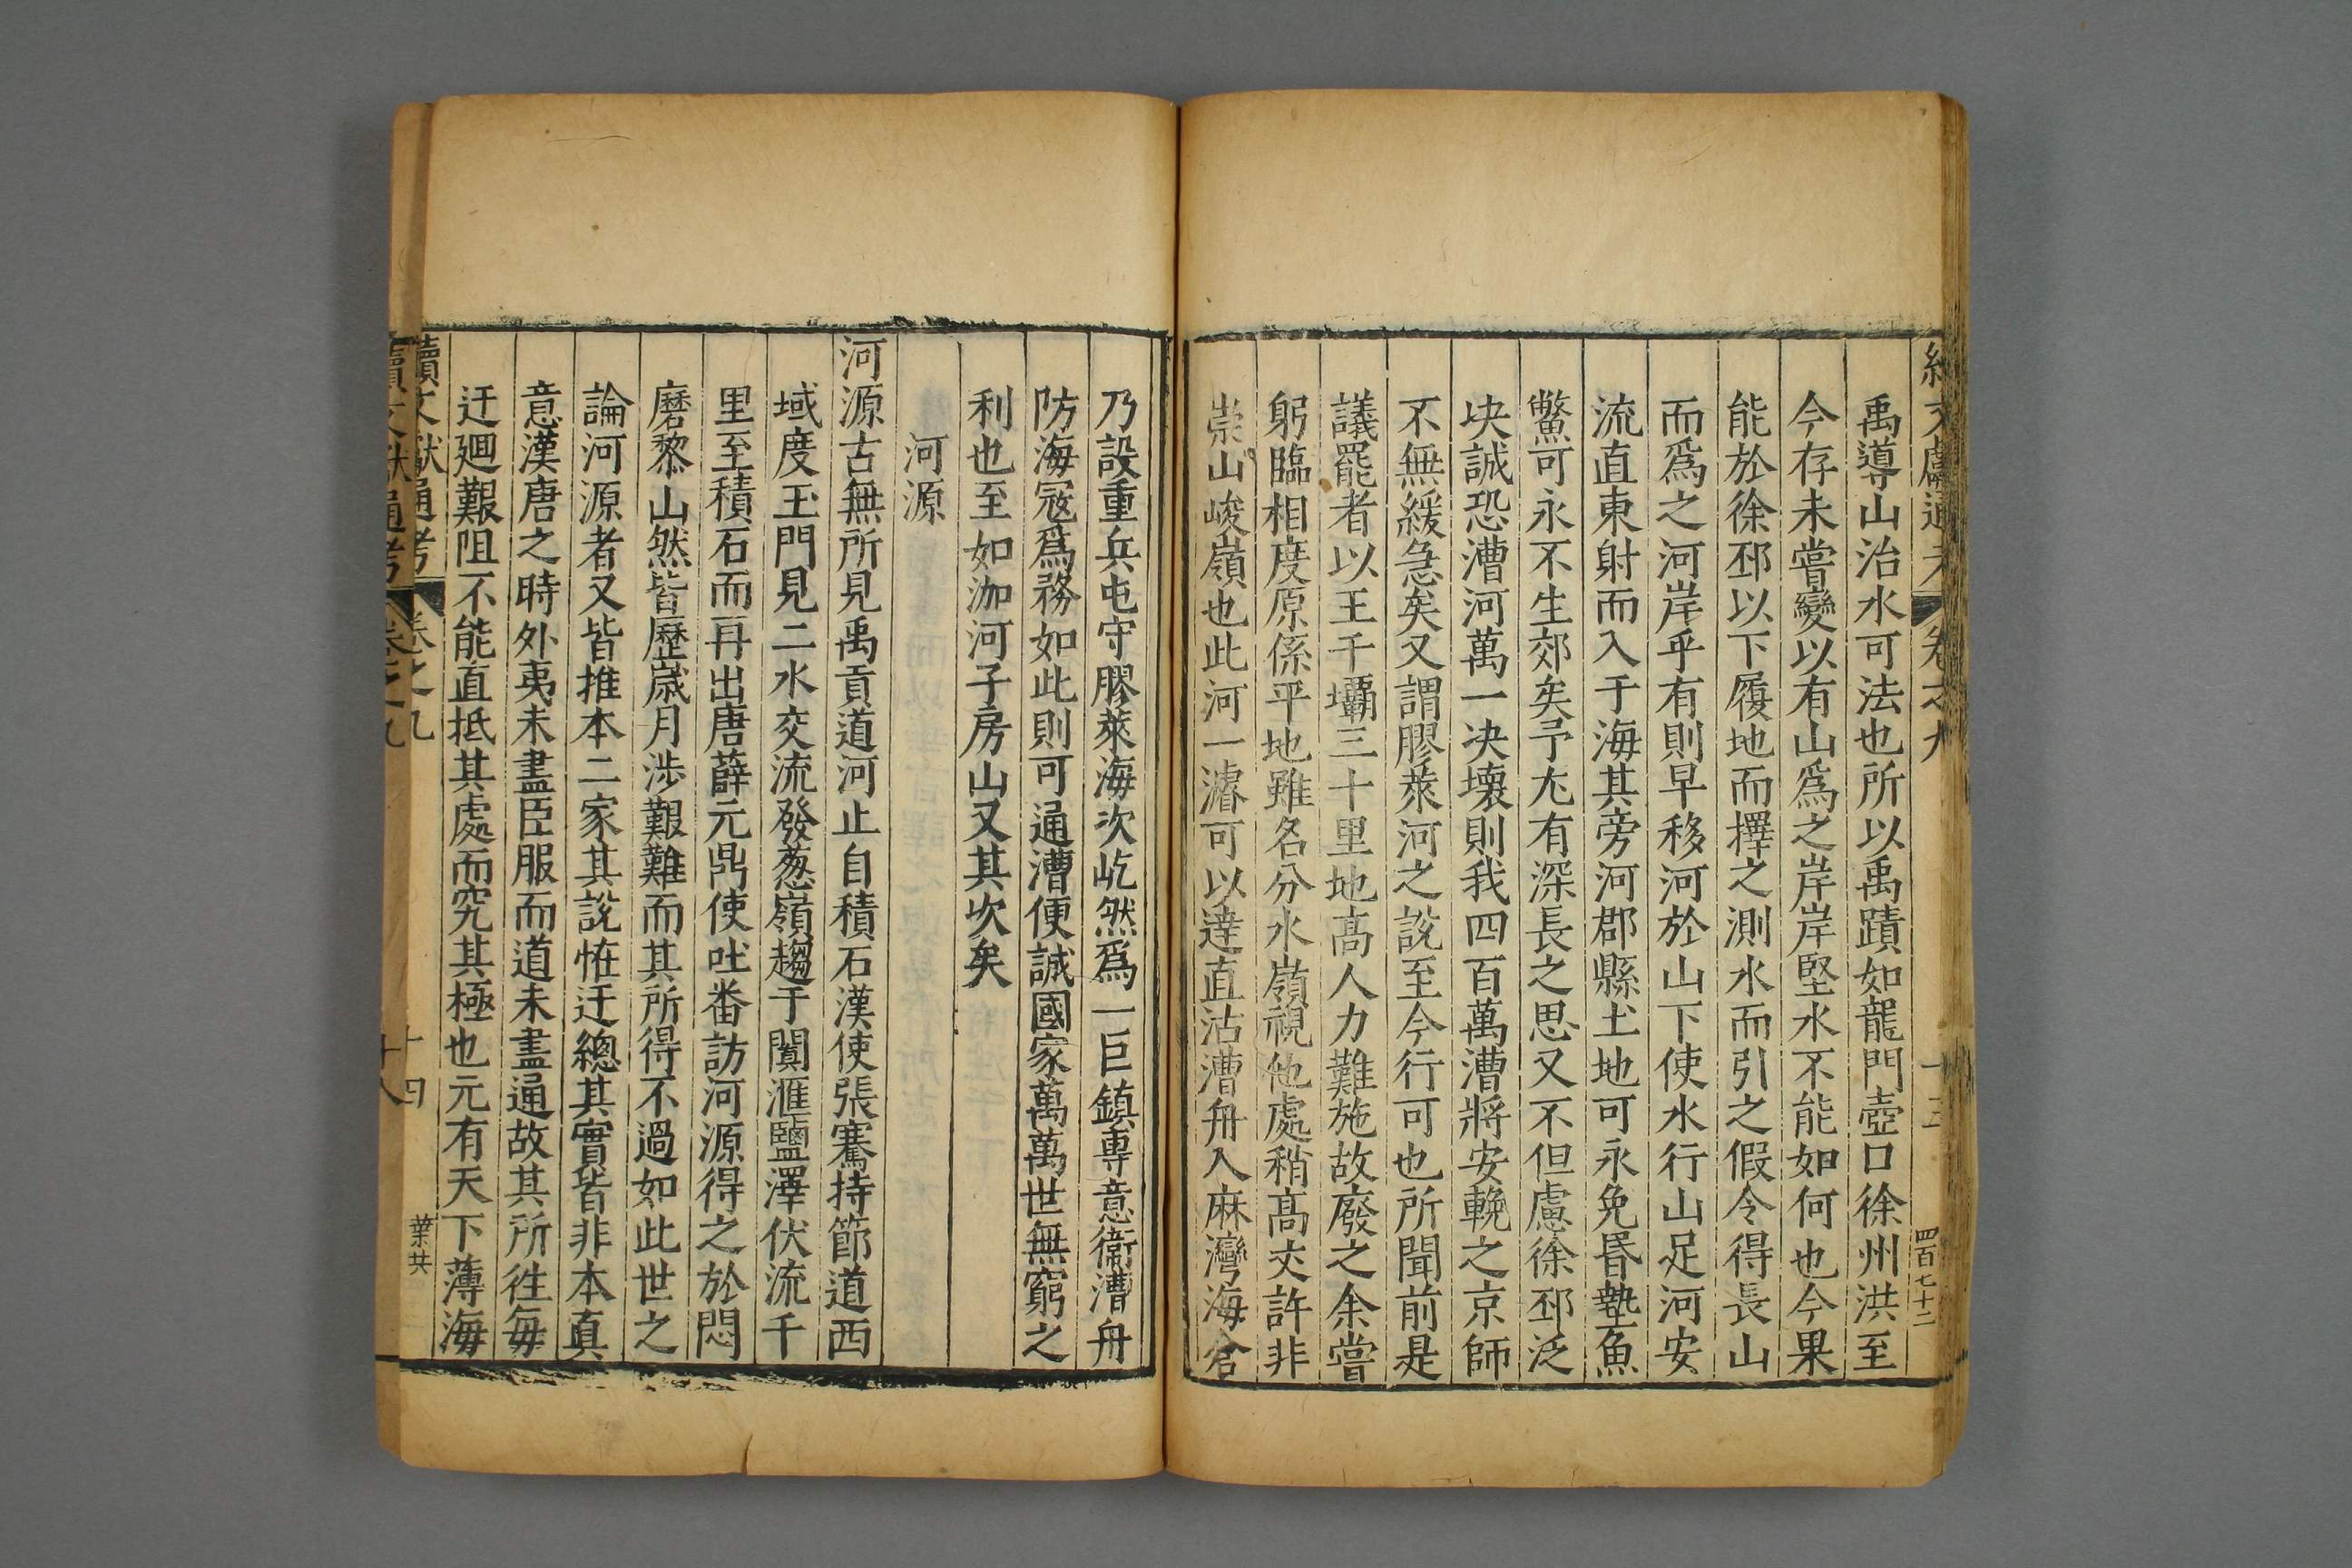 續文獻通考 卷之九 十三 四百七十二
禹導山治水可法也所以禹蹟如龍門壺口徐州洪至
今存未嘗變以有山爲之岸岸堅水不能如何也今果
能於徐邳以下履地而擇之測水而引之假令得長山
而爲之河岸乎有則早移河於山下使水行山足河安
流直東射而入于海其旁河郡縣土地可永免昬墊魚
鱉可永不生郊矣予尢有深長之思又不但慮徐邳泛
決誠恐漕河萬一决壊則我四百萬漕將安輓之京師
不無緩急矣又謂膠萊河之說至今行可也所聞前是
議罷者以王千壩三十里地高人力難施故廢之余嘗
躬臨相度原係平地雖名分水嶺視他處稍高丈許非
崇山峻嶺也此河一濬可以達直沽漕舟入麻灣海倉
乃設重兵屯守膠萊海次屹然爲一巨鎮專意衞漕舟
防海寇爲務如此則可通漕便誠國家萬萬世無窮之
利也至如泇河子房山又其次矣
河源
河源古無所見禹貢道河止自積石漢使張騫持節道西
域度玉門見二水交流發葱嶺趨于闐滙鹽澤伏流千
里至積石而再出唐薛元鼎使吐番訪河源得之於悶
磨黎山然皆歷歲月涉艱難而其所得不過如此世之
論河源者又皆推本二家其說恠迂總其實皆非本真
意漢唐之時外夷未盡臣服而道未盡通故其所徃每
迂廻艱阻不能直抵其處而究其極也元有天下薄海
續文獻通考 卷之九 十四 葉共
續文獻通考 卷之九 十八